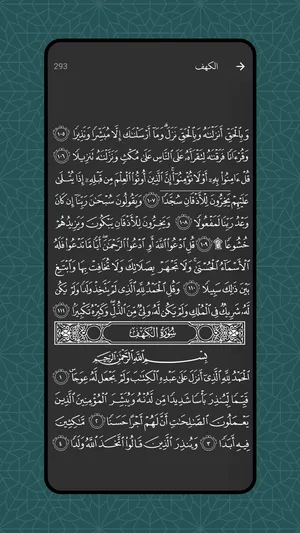 الكهف
293
وَبِالْحَقِّ أَنزَلْنَٰهُ وَبِالْحَقِّ نَزَلَ ۗ وَمَا أَرْسَلْنَٰكَ إِلَّا مُبَشِّرًا وَنَذِيرًا ١٠٥
وَقُرْءَانًا فَرَقْنَٰهُ لِتَقْرَأَهُۥ عَلَى النَّاسِ عَلَىٰ مُكْثٍ وَنَزَّلْنَٰهُ تَنزِيلًا ١٠٦
قُلْ ءَامِنُوا بِهِۦٓ أَوْ لَا تُؤْمِنُوٓا ۚ إِنَّ الَّذِينَ أُوتُوا الْعِلْمَ مِن قَبْلِهِۦٓ إِذَا يُتْلَىٰ
عَلَيْهِمْ يَخِرُّونَ لِلْأَذْقَانِ سُجَّدًا ١٠٧ وَيَقُولُونَ سُبْحَٰنَ رَبِّنَآ إِن كَانَ
وَعْدُ رَبِّنَا لَمَفْعُولًا ١٠٨ وَيَخِرُّونَ لِلْأَذْقَانِ يَبْكُونَ وَيَزِيدُهُمْ
خُشُوعًا ۩ ١٠٩ قُلِ ادْعُوا اللَّهَ أَوِ ادْعُوا الرَّحْمَٰنَ ۖ أَيًّا مَّا تَدْعُوا فَلَهُ
الْأَسْمَآءُ الْحُسْنَىٰ ۚ وَلَا تَجْهَرْ بِصَلَاتِكَ وَلَا تُخَافِتْ بِهَا وَابْتَغِ
بَيْنَ ذَٰلِكَ سَبِيلًا ١١٠ وَقُلِ الْحَمْدُ لِلَّهِ الَّذِي لَمْ يَتَّخِذْ وَلَدًا وَلَمْ يَكُن
لَّهُۥ شَرِيكٌ فِي الْمُلْكِ وَلَمْ يَكُن لَّهُۥ وَلِيٌّ مِّنَ الذُّلِّ ۖ وَكَبِّرْهُ تَكْبِيرًا ١١١
سُورَةُ الْكَهْفِ
بِسْمِ اللَّهِ الرَّحْمَٰنِ الرَّحِيمِ
الْحَمْدُ لِلَّهِ الَّذِيٓ أَنزَلَ عَلَىٰ عَبْدِهِ الْكِتَٰبَ وَلَمْ يَجْعَل لَّهُۥ عِوَجَا ۜ ١
قَيِّمًا لِّيُنذِرَ بَأْسًا شَدِيدًا مِّن لَّدُنْهُ وَيُبَشِّرَ الْمُؤْمِنِينَ الَّذِينَ
يَعْمَلُونَ الصَّٰلِحَٰتِ أَنَّ لَهُمْ أَجْرًا حَسَنًا ٢ مَّٰكِثِينَ
فِيهِ أَبَدًا ٣ وَيُنذِرَ الَّذِينَ قَالُوا اتَّخَذَ اللَّهُ وَلَدًا ٤